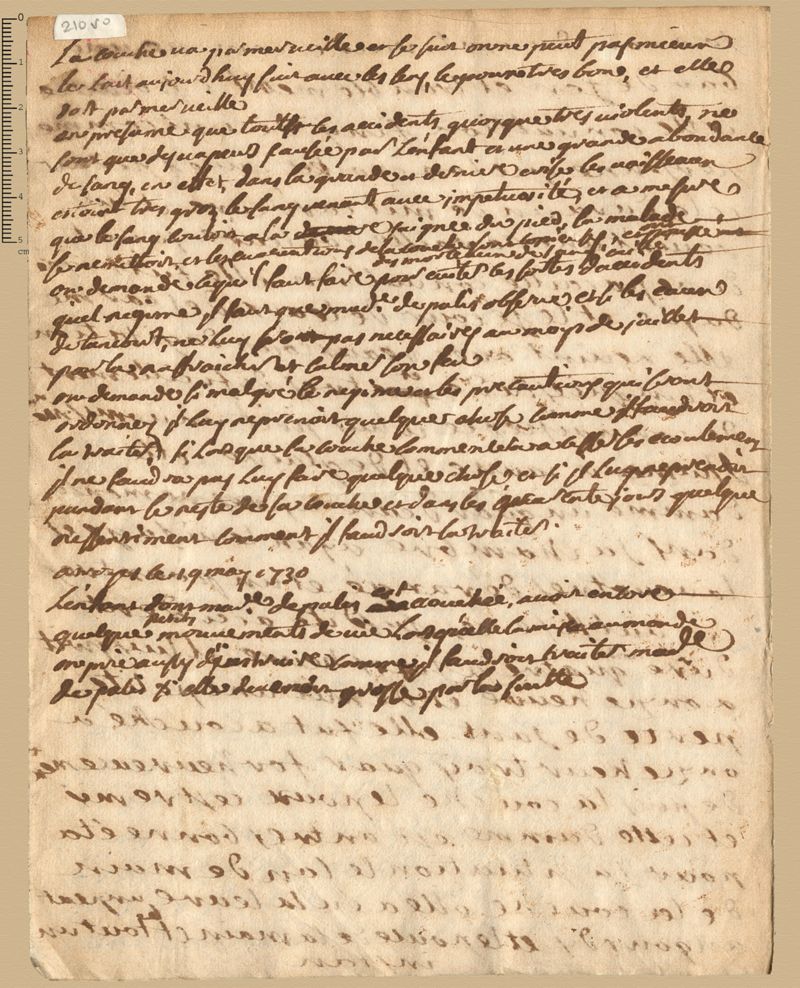 210 v°
La couche va par merveille et se suit on ne peut pas mieux
le lait aujourd'huy suit avec les le pou tres bon, et elle
dort par merveille
on presume que tous les accidents quoyque tres violents, ne
sont que des vapeurs causée par l'enfant et une grande abondance
de sang, en effet dans la grande et derniere crise les vaisseaux
estoint tres gros le sang venant avec impetuosité, et a mesure
que le sang couloit a la saignée du pied, la malade
se remettoit, et les evacuations de la couche
on demande ce qu'il faut faire pour eviter les sortes d'accidents
quel regime il faut que mad.e de palis observe et si les eaux
de ne luy sont pas necessaires au moys de juillet
pour la raffraichir et calmer son feu
on demande si malgré le regime et les precautions qui seront
ordonnez il luy reprenoit quelque chose comme il faudroit
la traiter, si lorsque la couche commencera a les ecoulement
il ne faudra pas luy faire quelque chose, et si il luy reprendoit
pendant le reste de sa couche et dans les quarante jours quelque
ressentiment comment il faudroit la traiter.
a le 19 may 1730
L'enfant dont mad.e de palis est accouchée, avoit encore
quelque petits mouvements de vie lorsqu'elle la mis au monde
on prie aussy d'instruire comme il faudroit traiter mad.e
de palis si elle devenoit grosse par la suitte